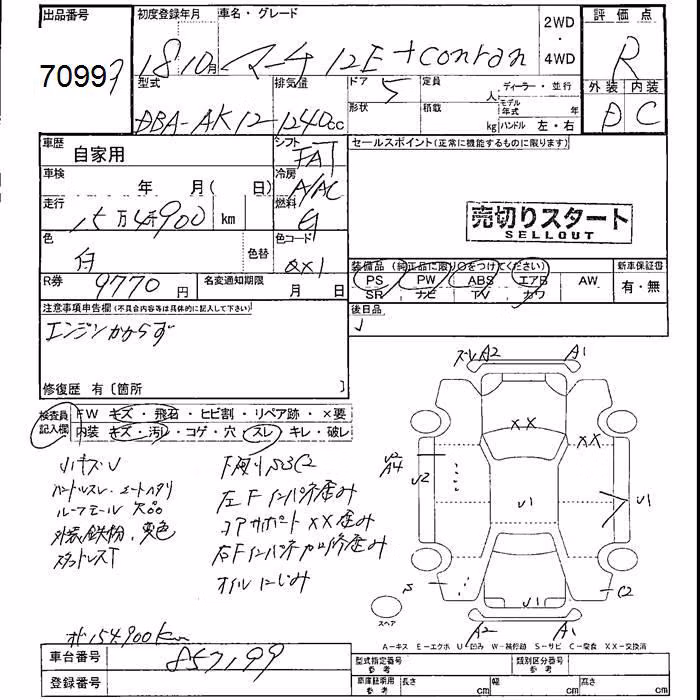 出品番号 初度登録年月 車名・グレード 2WD・4WD 評価点
7099 18 10月 マーチ 12E+conran R
型式 排気量 ドア 5 定員 人 ディーラー・並行 外装 内装
DBA-AK12 1240cc 形状 積載 kg モデル年式 年 ハンドル 左・右 D C
車歴 自家用 シフト FAT セールスポイント(正常に機能するものに限ります)
車検 年 月( 日) 冷房 A/AC
走行 15万4千900 km 燃料 G
売切りスタート
SELLOUT
色 白 色替 色コード QX1
装備品(純正品に限り○をつけてください) 新車保証書
PS PW ABS エアB AW 有・無
SR ナビ TV カワ
R券 9770円 名変通知期限 月 日
後日品
注意事項申告欄(不具合内容等は具体的に記入して下さい)
エンジンかからず
修復歴 有〔箇所 〕
検査員記入欄
FW キズ・飛石・ヒビ割・リペア跡・×要
内装 キズ・汚レ・コゲ・穴 スレ・キレ・破レ
小キズU
ハンドルスレ、シートヘタリ
ルーフモール欠品
外装鉄粉、変色
スタッドレスT
下廻りS3C2
左Fインパネ歪み
コアサポートXX歪み
右Fインパネ加修歪み
オイルにじみ
ズレA2 A1
XX
XX
U2
A4
U2
U1
U1
S
C2
U1
スペア
A2 A1
オド154,900km
A-キズ E-エクボ U-凹み W-補修跡 S-サビ C-腐食 XX-交換済
車台番号 857199
登録番号
型式指定番号 参考 類別区分番号 参考
車庫証明用 参考 長さ cm 幅 cm 高さ cm